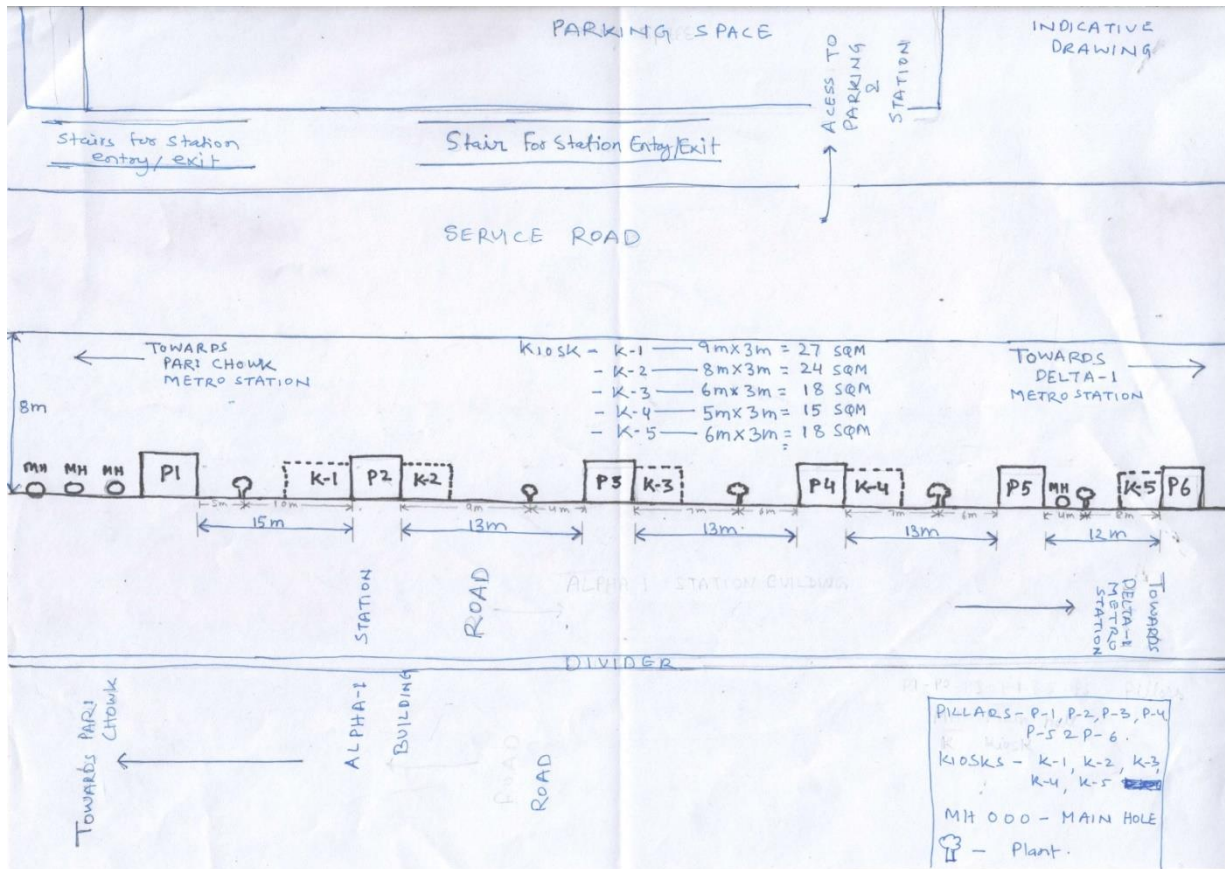 PARKING SPACE
INDICATIVE
DRAWING
ACESS TO
PARKING
2
STATION
Stairs for station
entry/exit
Stair For Station Entry/Exit
SERVICE ROAD
TOWARDS
PARI CHOWK
METRO STATION
KIOSK - K-1 — 9m×3m = 27 SQM
- K-2 — 8m×3m = 24 SQM
- K-3 — 6m×3m = 18 SQM
- K-4 — 5m×3m = 15 SQM
- K-5 — 6m×3m = 18 SQM
TOWARDS
DELTA-1
METRO STATION
8m
MH MH MH P1 K-1 P2 K-2 P3 K-3 P4 K-4 P5 MH K-5 P6
5m 10m 9m 4m 7m 6m 7m 6m 4m 8m
15m 13m 13m 13m 12m
STATION
ROAD
ALPHA-1 STATION BUILDING
TOWARDS
DELTA-1
METRO
STATION
DIVIDER
TOWARDS PARI
CHOWK
ALPHA-1
BUILDING
ROAD
PILLARS - P-1, P-2, P-3, P-4
P-5 2 P-6.
KIOSKS - K-1, K-2, K-3,
K-4, K-5
MH OOO - MAIN HOLE
- Plant.